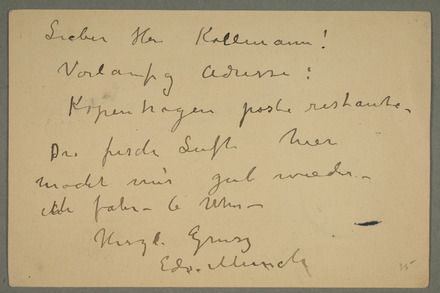 Lieber Herr Kollmann!
Vorlaufig Adresse:
Kopenhagen poste restante.
Die frische Luft hier
macht mir gut wieder.
ich fahr 6 Uhr
Herzl. Gruss
Edv. Munch
15